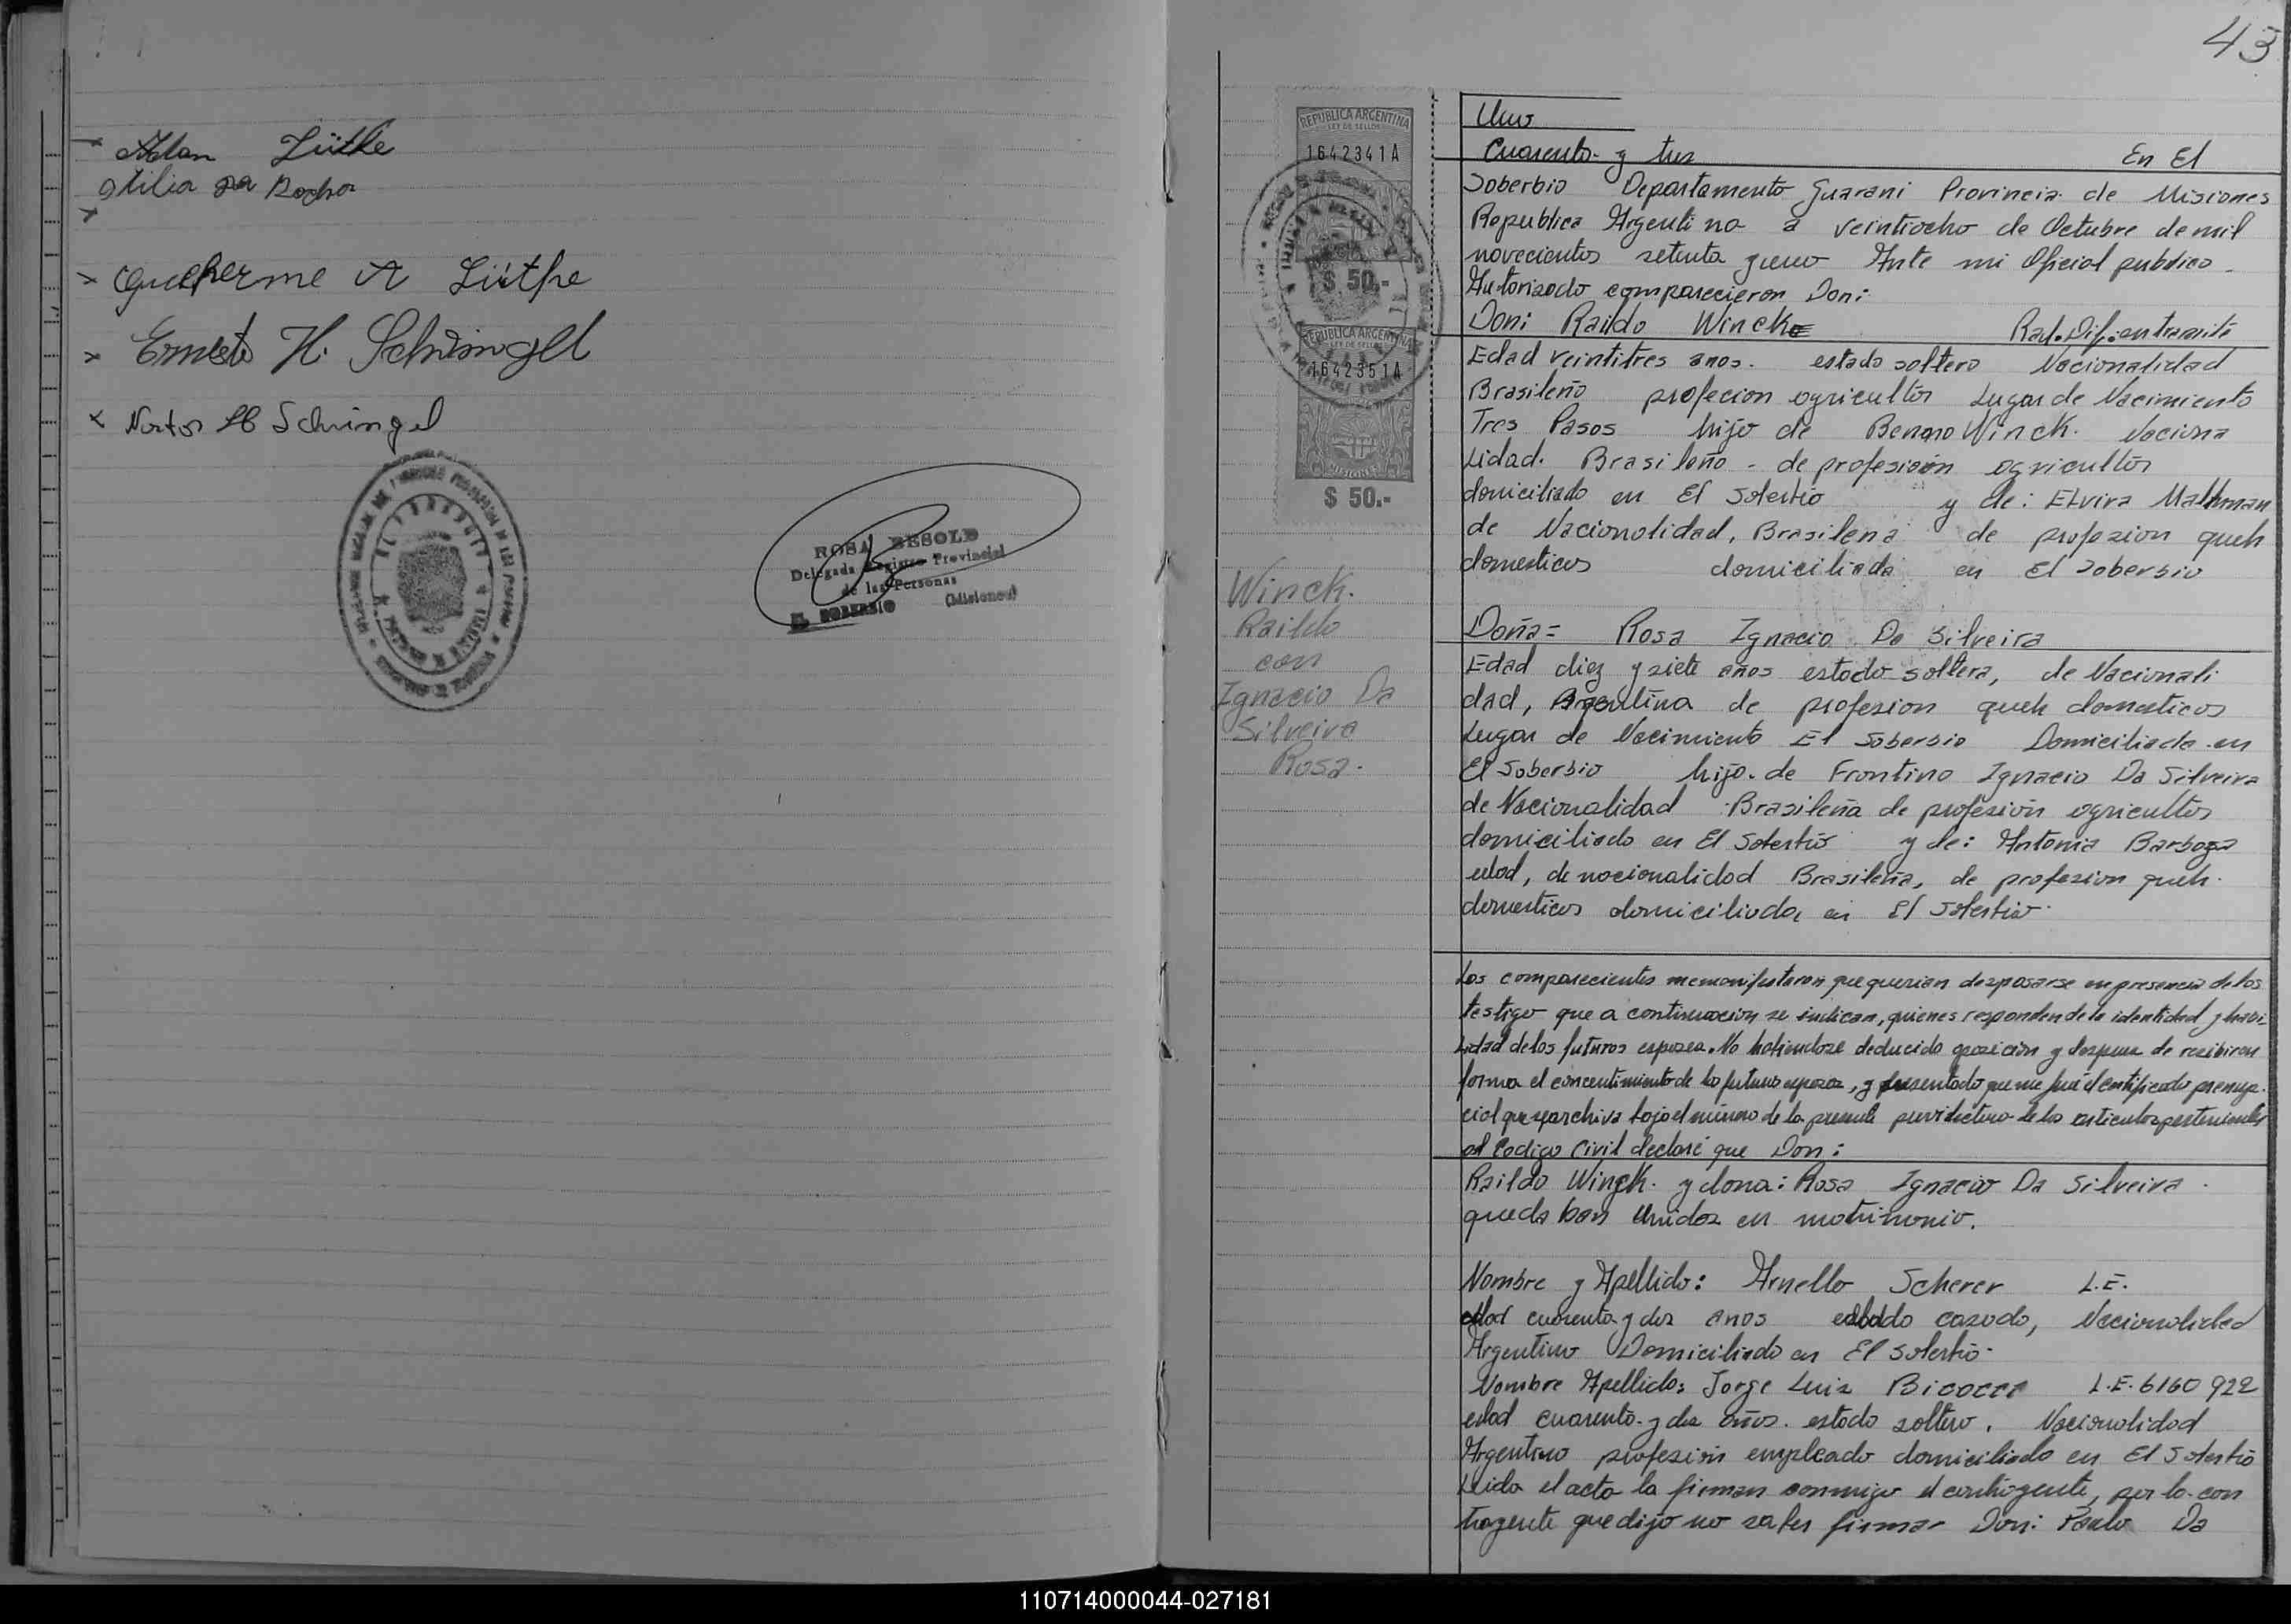 Adan Lüthe
Otilia da Rocha
Guilherme A Lüthe
Ernesto H. Schwingel
Schwingel
ROSA BESOLD
Delegada Registro Provincial
de las Personas
EL SOBERBIO (Misiones)
43
REPUBLICA ARGENTINA
LEY DE SELLOS
1642341A
$ 50.-
REPUBLICA ARGENTINA
LEY DE SELLOS
1642351A
MISIONES
$ 50.-
Winck.
Raildo
con
Ignacio Da
Silveira
Rosa.
Uno
Cuarenta y tres En El
Soberbio Departamento Guarani Provincia de Misiones
Republica Argentina a veintiocho de Octubre de mil
novecientos setenta y uno Ante mi Oficial publico
Autorizado comparecieron Don:
Don: Raildo Winck Rad. Dif. en tramite
Edad veintitres anos. estado soltero Nacionalidad
Brasileño profecion agricultor Lugar de Nacimiento
Tres Pasos hijo de Benno Winck. Naciona
Lidad. Brasileño - de profesión agricultor
domiciliado en El Soberbio y de: Elvira Malhman
de Nacionalidad, Brasilena de profesion queh
domesticos domiciliada en El Soberbio
Doña= Rosa Ignacio Da Silveira
Edad diez y siete años estado soltera, de Nacionali
dad, Argentina de profesion queh domesticos
Lugar de Nacimiento El Soberbio Domiciliada en
El Soberbio hija de Frontino Ignacio Da Silveira
de Nacionalidad Brasileña de profesión agricultor
domiciliado en El Soberbio y de: Antonia Barboza
edad, de nacionalidad Brasileña, de profesion queh.
domesticos domiciliada en El Soberbio.
Los comparecientes me manifestaron que querian desposarse en presencia de los
testigo que a continuacion se indican, quienes responden de la identidad y habi-
Lidad de los futuros esposos. No habiendose deducido oposición y despues de recibir en
forma el concentimiento de los futuros esposos, y presentado que me fué el certificado prenup-
cial que se archiva bajo el número de la presente previa lectura de los articulos pertinentes
al Codigo Civil declaré que Don:
Raildo Winck. y dona: Rosa Ignacio Da Silveira.
quedaban Unidos en matrimonio.
Nombre y Apellido: Arnello Scherer L.E.
edad cuarenta y dos anos estado casado, Nacionalidad
Argentino Domiciliado en El Soberbio-
Nombre Apellido: Jorge Luis Bicocca L.E. 6160922
edad cuarenta y dos años. estado soltero. Nacionalidad
Argentino profesión empleado domiciliado en El Soberbio
Leida el acta la firman conmigo el contrayente, por la con
trayente que dijo no saber firmar Don: Paulo Da
110714000044-027181